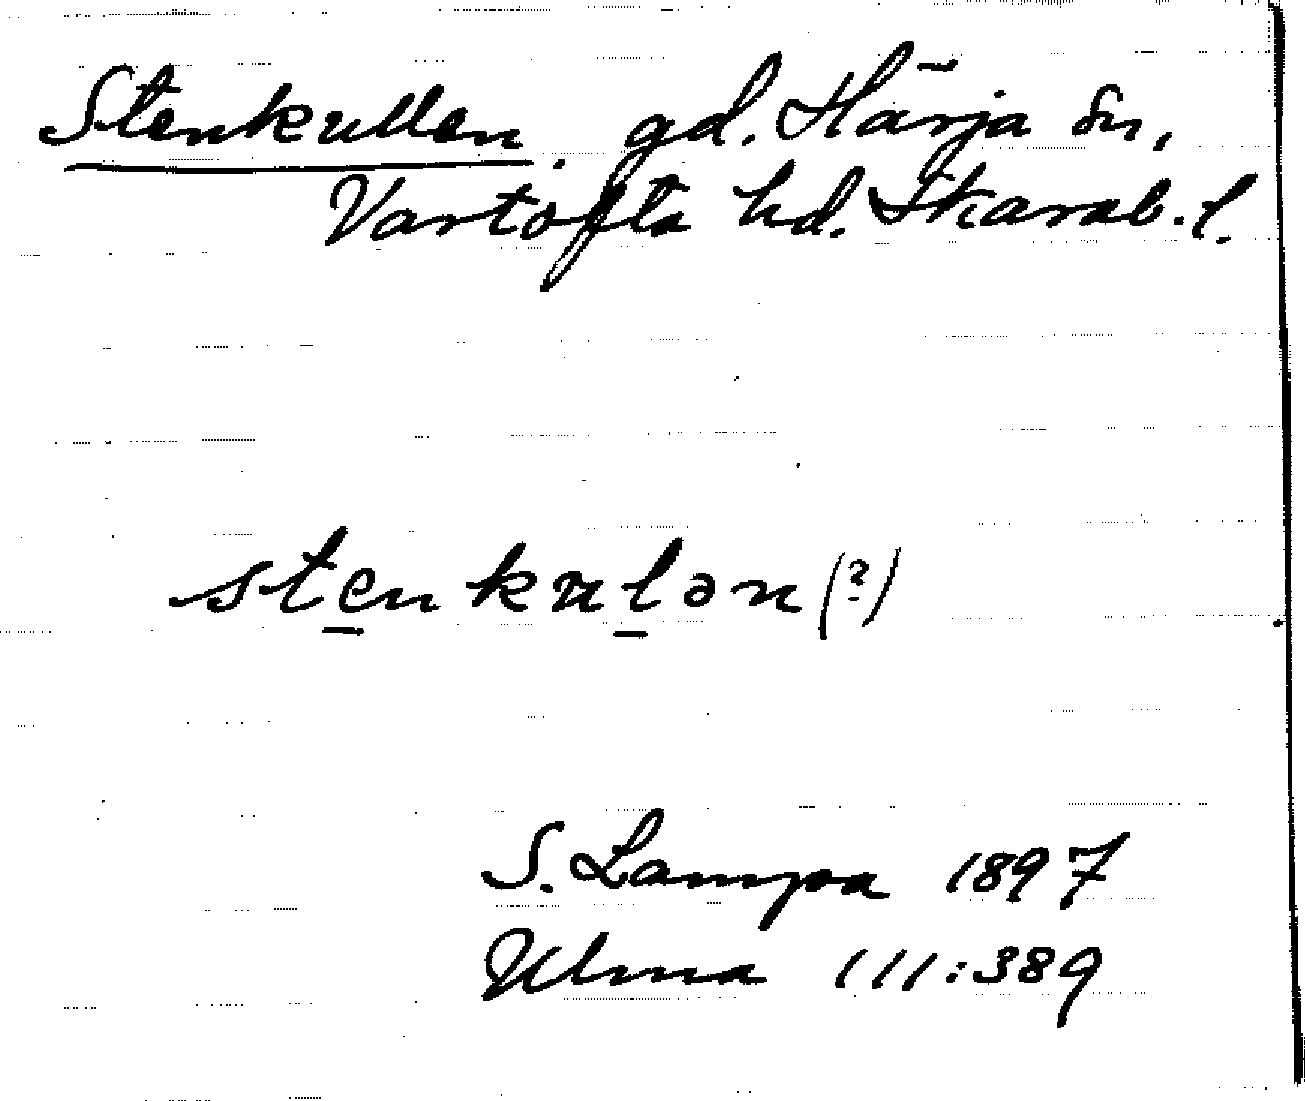 Stenkullen. gd. Härja sn,
Vartofta hd. Skarab.l.
ste̲nkul̲ən (?)
S. Lampa 1897
Ulma 111:389